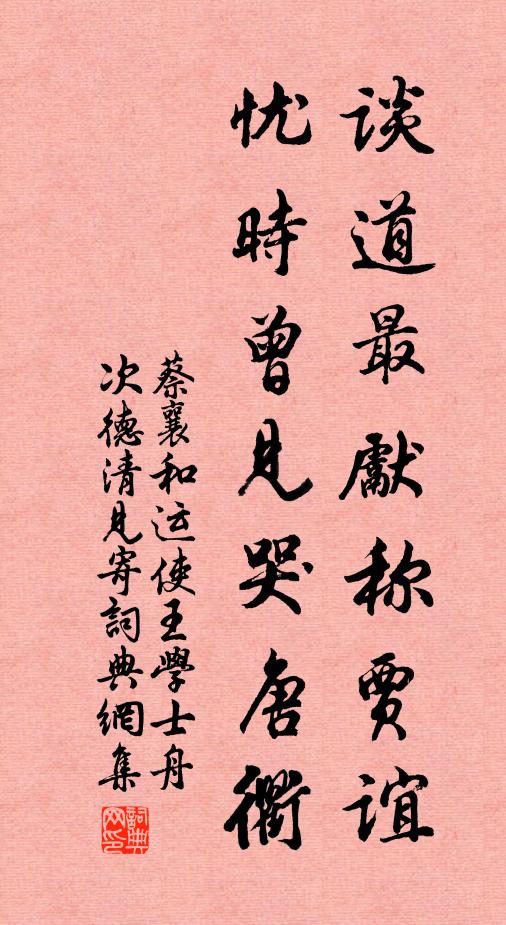 谈道最献称賈誼
忧時曾見哭唐衢
蔡襄和运使王學士舟
次德清見寄詞典網集
詞典网印